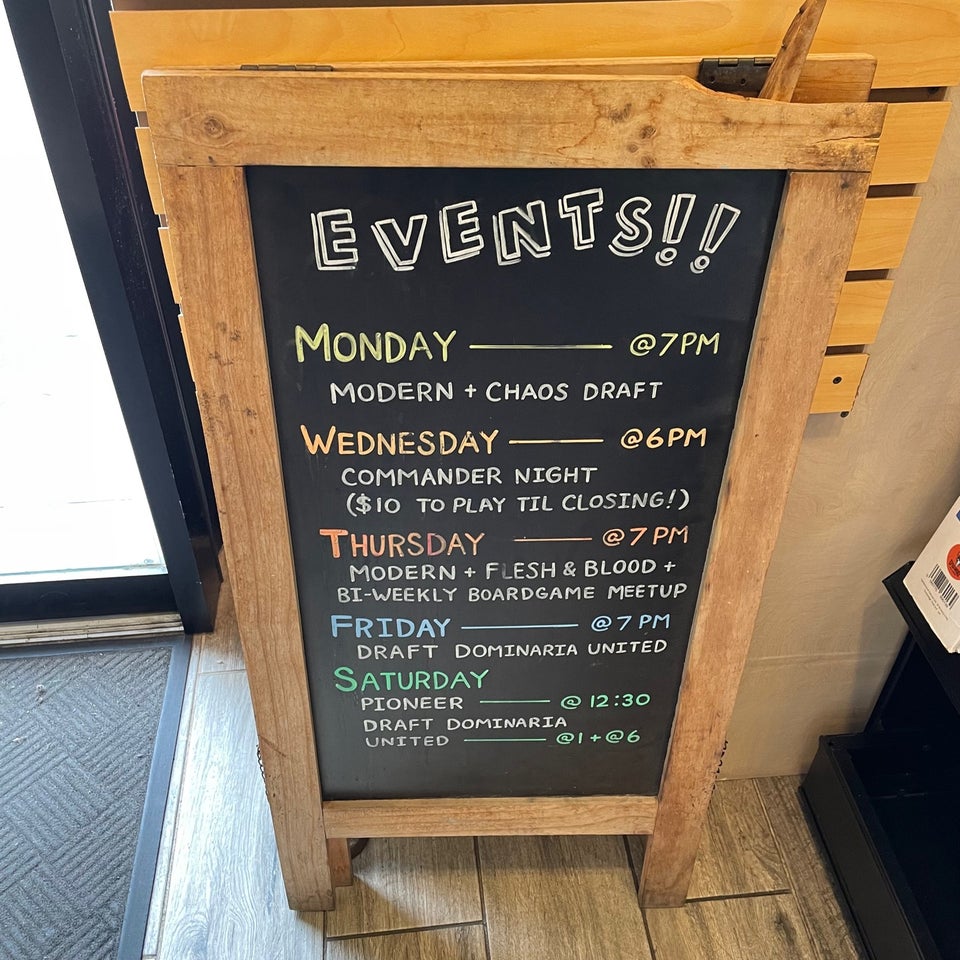 EVENTS!!
MONDAY @7PM
MODERN + CHAOS DRAFT
WEDNESDAY @6PM
COMMANDER NIGHT
($10 TO PLAY TIL CLOSING!)
THURSDAY @7PM
MODERN + FLESH & BLOOD +
BI-WEEKLY BOARDGAME MEETUP
FRIDAY @7PM
DRAFT DOMINARIA UNITED
SATURDAY
PIONEER @12:30
DRAFT DOMINARIA
UNITED @1+@6